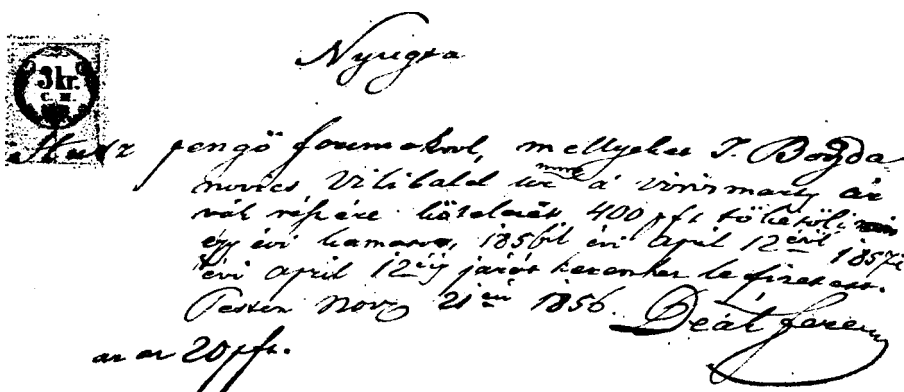 Nyugta
3 kr.
C. M.
Husz pengő forintokrol, mellyeket T. Bogda
novics Vilibald úr mint a Vörösmarty ár
vák részére kötelezett 400 pft tőkétöli
egy évi kamatot, 1856ik évi April 12érül 1857ik
évi April 12éig járót kezemhez lefizetett.
Pesten Nov 21én 1856. Deák Ferencz
az az 20 pft.